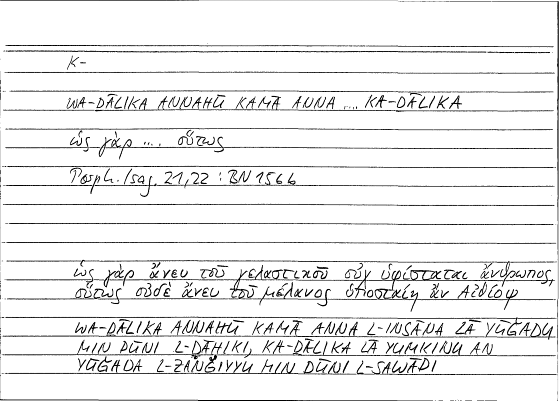 K-
WA-ḎĀLIKA ANNAHŪ KAMĀ ANNA .... KA-ḎĀLIKA
ὡς γὰρ .... οὕτως
Porph. Isag. 21,22 : BN 156b
ὡς γὰρ ἄνευ τοῦ γελαστικοῦ οὐχ ὑφίσταται ἄνθρωπος,
οὕτως οὐδὲ ἄνευ τοῦ μέλανος ὑποσταίη ἂν Αἰθίοψ
WA-ḎĀLIKA ANNAHŪ KAMĀ ANNA L-INSĀNA LĀ YŪǦADU
MIN DŪNI L-ḌAḤIKI, KA-ḎĀLIKA LĀ YUMKINU AN
YŪǦADA L-ZANǦIYYU MIN DŪNI L-SAWĀDI